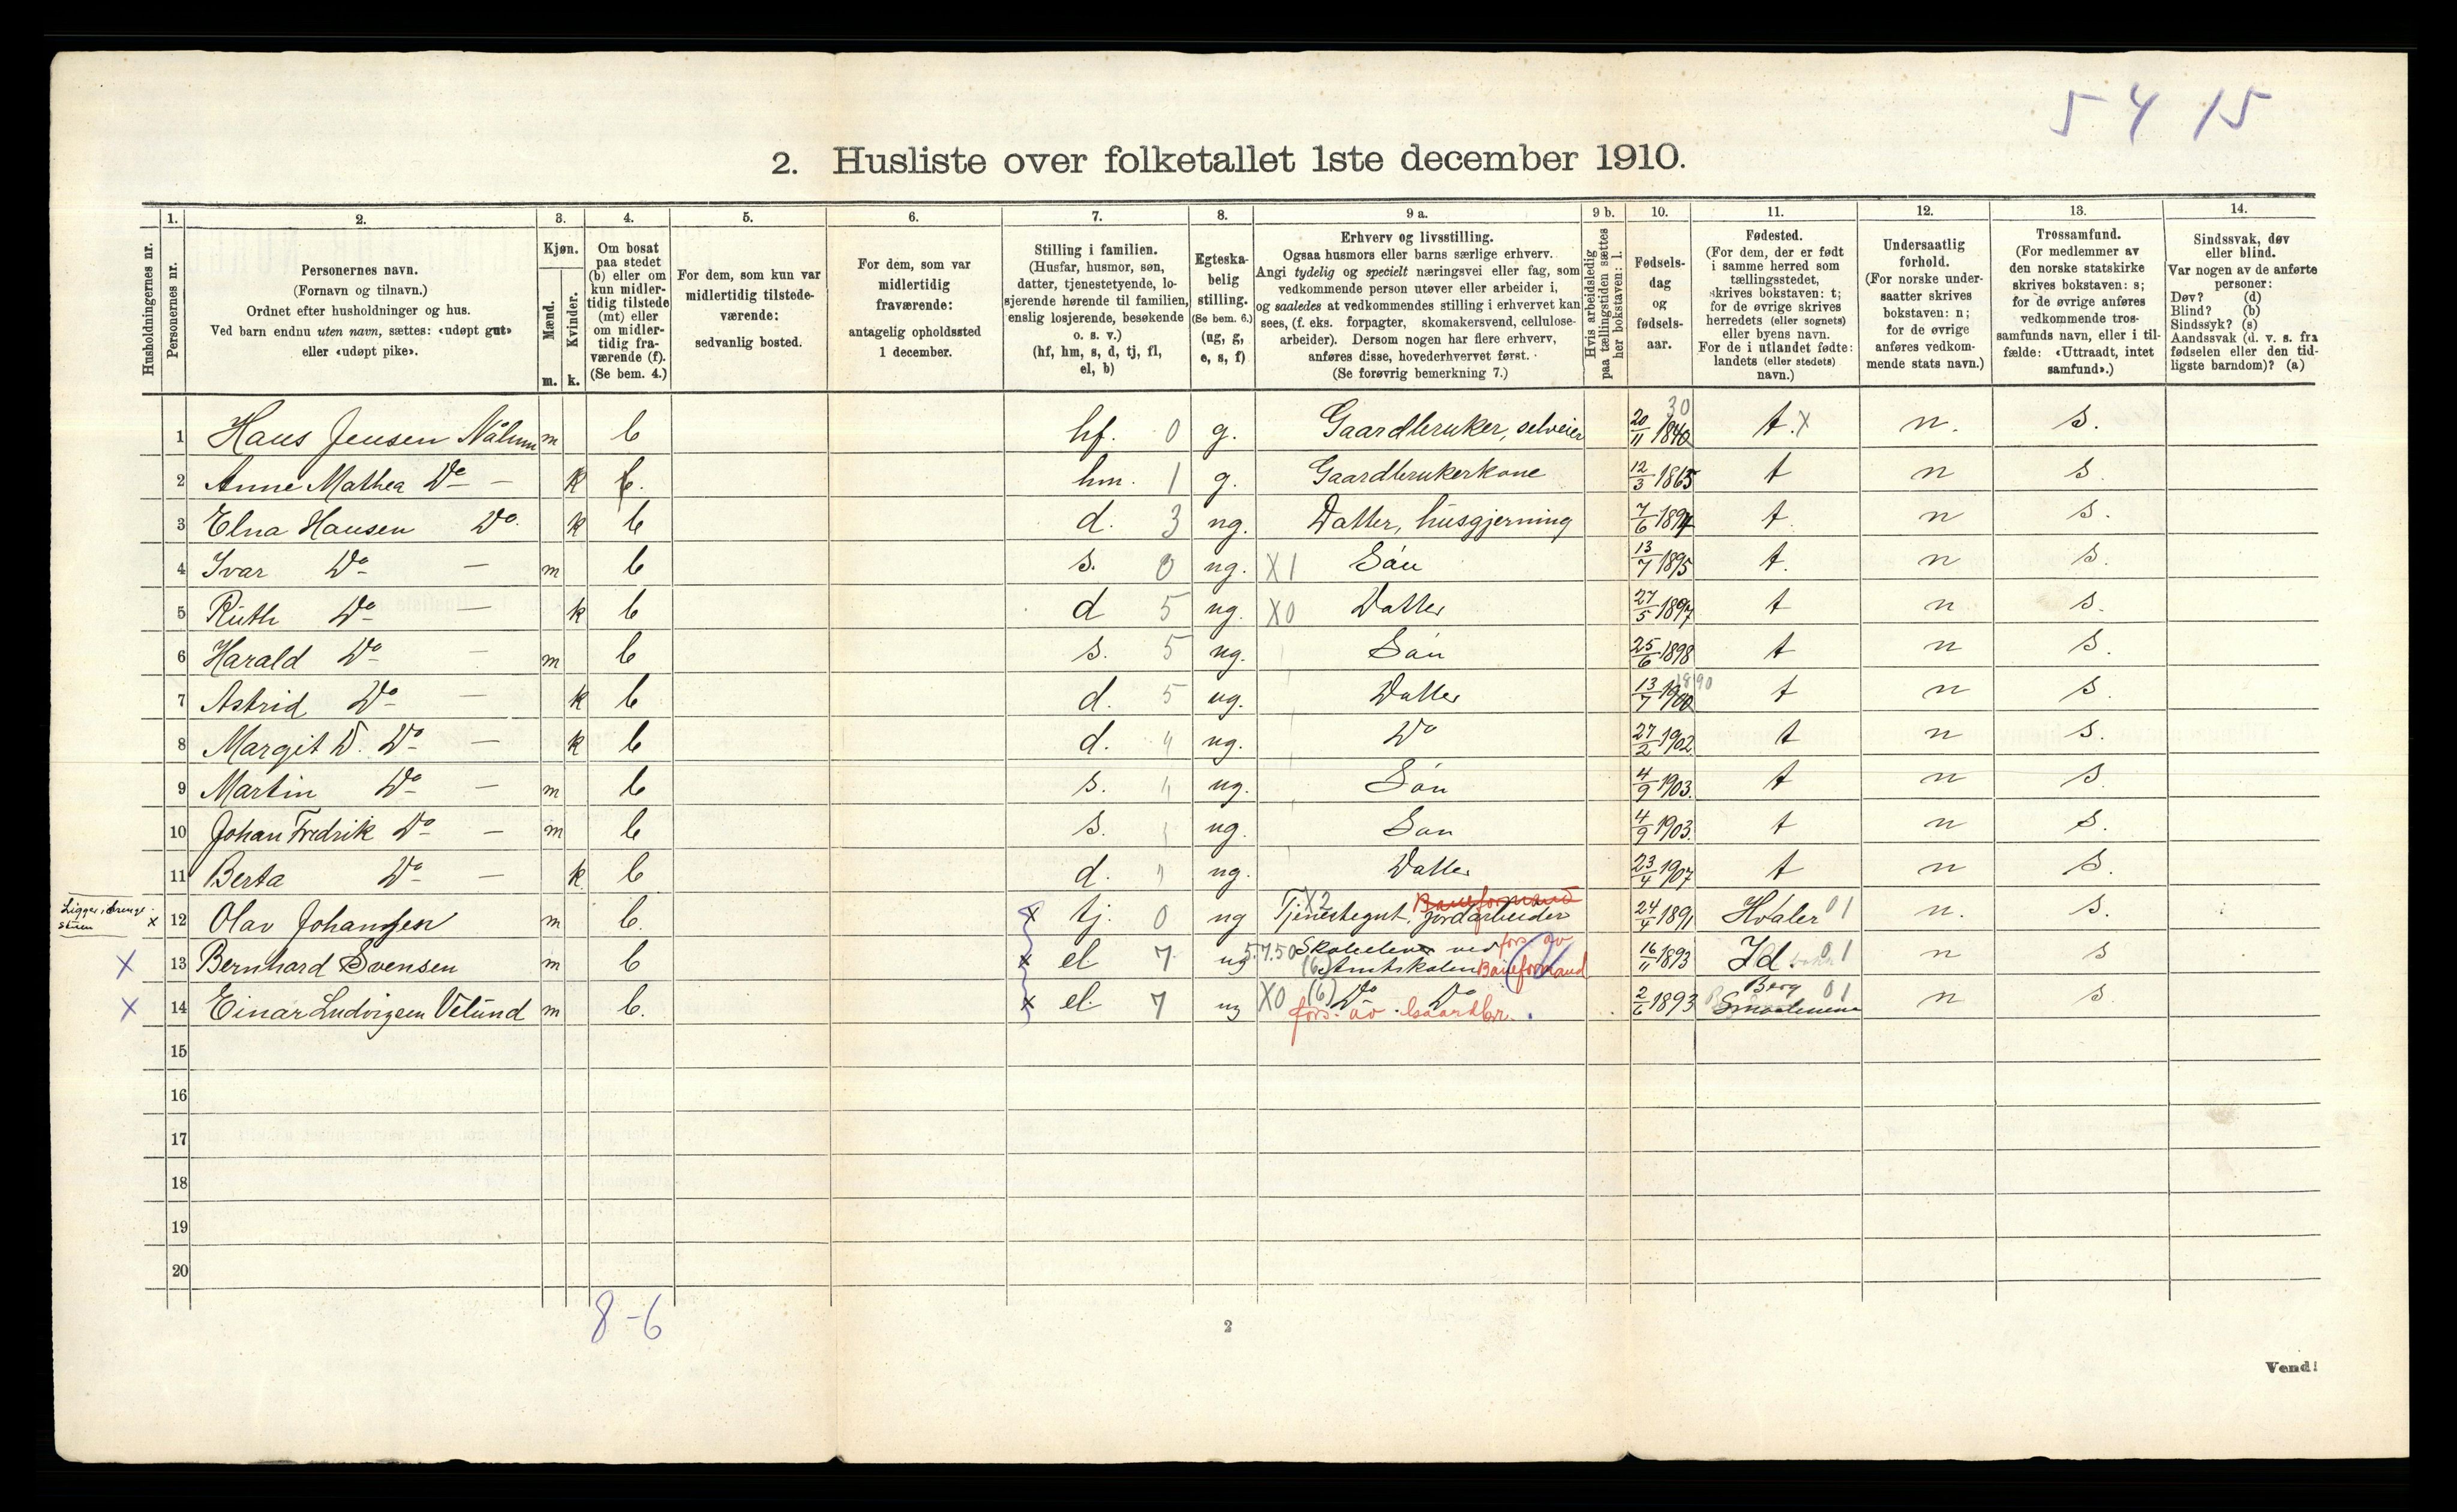 54 15
2. Husliste over folketallet 1ste december 1910.
1. 2. 3. 4. 5. 6. 7. 8. 9 a. 9 b. 10. 11. 12. 13. 14.
Husholdningernes nr.
Personernes nr.
Personernes navn.
(Fornavn og tilnavn.)
Ordnet efter husholdninger og hus.
Ved barn endnu uten navn, sættes: «udøpt gut»
eller «udøpt pike».
Kjøn.
Mænd.
Kvinder.
m. k.
Om bosat
paa stedet
(b) eller om
kun midler-
tidig tilstede
(mt) eller
om midler-
tidig fra-
værende (f).
(Se bem. 4.)
For dem, som kun var
midlertidig tilstede-
værende:
sedvanlig bosted.
For dem, som var
midlertidig
fraværende:
antagelig opholdssted
1 december.
Stilling i familien.
(Husfar, husmor, søn,
datter, tjenestetyende, lo-
sjerende hørende til familien,
enslig losjerende, besøkende
o. s. v.)
(hf, hm, s, d, tj, fl,
el, b)
Egteska-
belig
stilling.
(Se bem. 6.)
(ug, g,
e, s, f)
Erhverv og livsstilling.
Ogsaa husmors eller barns særlige erhverv.
Angi tydelig og specielt næringsvei eller fag, som
vedkommende person utøver eller arbeider i,
og saaledes at vedkommendes stilling i erhvervet kan
sees, (f. eks. forpagter, skomakersvend, cellulose-
arbeider). Dersom nogen har flere erhverv,
anføres disse, hovederhvervet først.
(Se forøvrig bemerkning 7.)
Hvis arbeidsledig
paa tællingstiden sættes
her bokstaven: l.
Fødsels-
dag
og
fødsels-
aar.
Fødested.
(For dem, der er født
i samme herred som
tællingsstedet,
skrives bokstaven: t;
for de øvrige skrives
herredets (eller sognets)
eller byens navn.
For de i utlandet fødte:
landets (eller stedets)
navn.)
Undersaatlig
forhold.
(For norske under-
saatter skrives
bokstaven: n;
for de øvrige
anføres vedkom-
mende stats navn.)
Trossamfund.
(For medlemmer av
den norske statskirke
skrives bokstaven: s;
for de øvrige anføres
vedkommende tros-
samfunds navn, eller i til-
fælde: «Uttraadt, intet
samfund».)
Sindssvak, døv
eller blind.
Var nogen av de anførte
personer:
Døv? (d)
Blind? (b)
Sindssyk? (s)
Aandssvak (d. v. s. fra
fødselen eller den tid-
ligste barndom)? (a)
30
1 Hans Jensen Nålum m b hf. 0 g. Gaardbruker, selveier 20/11 1840 t. x n. s.
2 Anne Mathea Do — k b. hm. 1 g. Gaardbrukerkone 12/3 1865 t n s.
3 Elna Hansen Do. k b d. 3 ug. Datter, husgjerning 7/6 1894 t. n s.
4 Ivar Do — m b s. 0 ug. X1 Søn 13/7 1895 t. n s.
5 Ruth Do — k b d 5 ug. X0 Datter 27/5 1897 t n s.
6 Harald Do — m b s. 5 ug. Søn 25/6 1898 t n s.
7 Astrid Do — k b d. 5 ug. Datter 13/7 1900 t n s.
8 Margit D. Do — k b d. ug. Do 27/2 1902. t n s.
9 Martin Do — m b s. ug. Søn 4/9 1903. t n s.
10 Johan Fredrik Do — m b s. ug. Søn 4/9 1903. t n s.
11 Berta Do — k b d. ug. Datter 23/4 1907 t n s.
x 12 Olav Johansen m b. x tj. 0 ug X2 Tjenestegut, jordarbeider Baneformand 24/4 1891 Hvaler 01 n. s.
X 13 Bernhard Svensen m b x el 7 ug 5750 Skoleelev ved fors. av
(6) Amtskolen Baneformand 16/11 1893 Id. 01 n s
X 14 Einar Ludvigsen Velund m b. x el 7 ug X0 (6) Do Do 2/6 1893 Berg 01
Smaalenene n s
fors. av Gaardbr.
15
16
17
18
19
20
8-6
2
Vend!